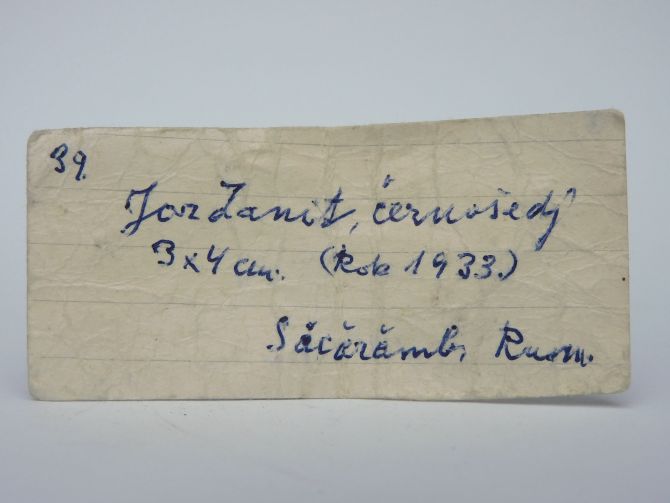 39.
Jordanit, černošedý
3x4 cm. (Rok 1933.)
Săcărămb, Rum.